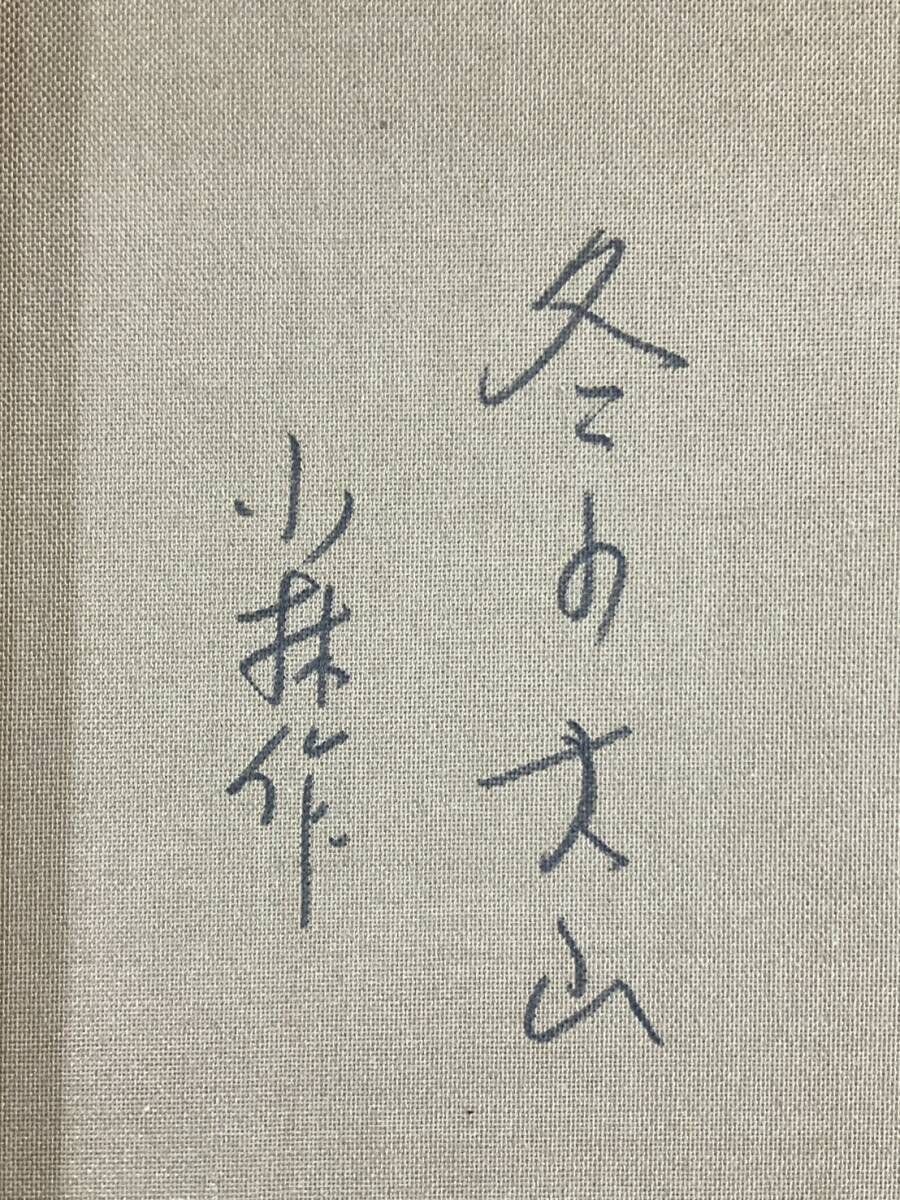 冬の大山
小林作